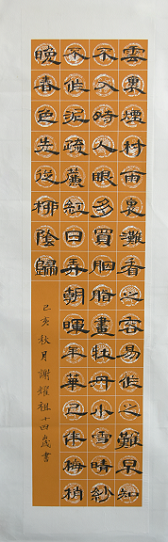 雲裏煙村雨裏灘看之容易作之難早知
不入時人眼多買胭脂畫牡丹小雪晴紗
不作泥疏簾紅日弄朝暉年華已伴梅梢
晚春色先從陰歸
己亥秋月謝耀祖十四歲書